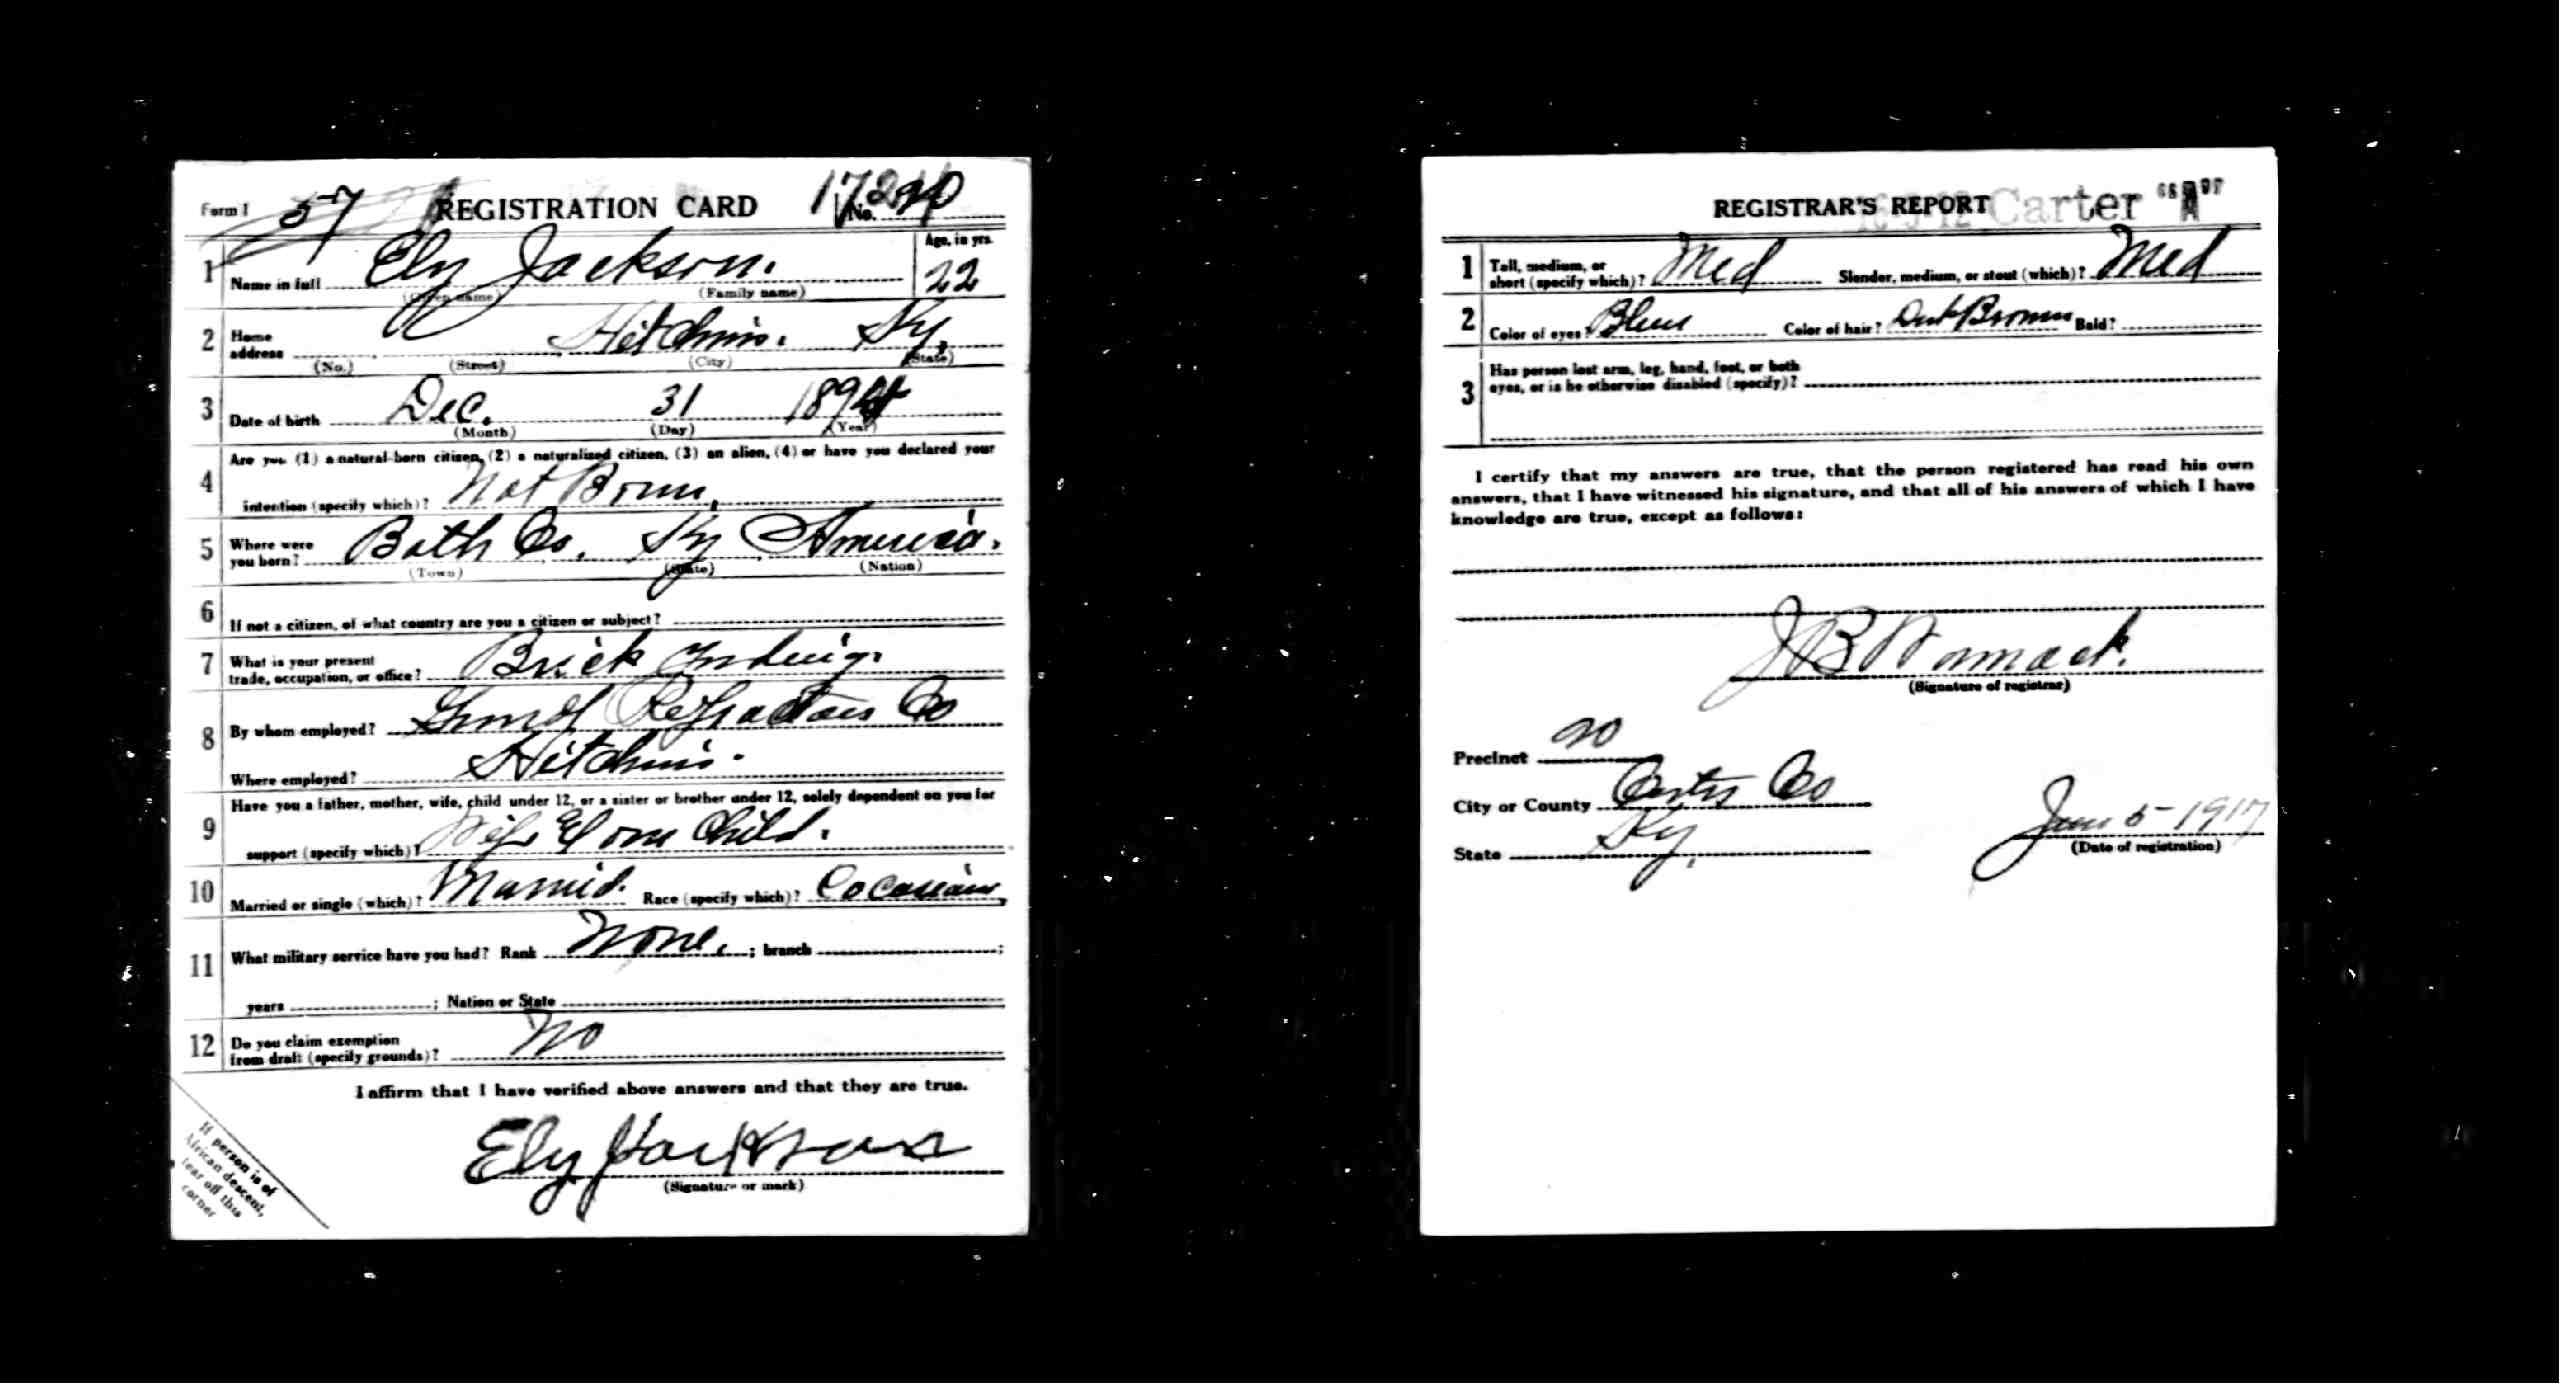 Form 1 57 REGISTRATION CARD No.
1 Name in full Ely Jackson. Age, in yrs. 22
(Given name) (Family name)
2 Home address Hitchins. Ky.
(No.) (Street) (City) (State)
3 Date of birth Dec. 31 1894
(Month) (Day) (Year)
4 Are you (1) a natural-born citizen, (2) a naturalized citizen, (3) an alien, (4) or have you declared your
intention (specify which)? Nat Born.
5 Where were you born? Bath Co. Ky America.
(Town) (State) (Nation)
6 If not a citizen, of what country are you a citizen or subject?
7 What is your present trade, occupation, or office? Brick
8 By whom employed? Refractories Co
Where employed? Hitchins.
9 Have you a father, mother, wife, child under 12, or a sister or brother under 12, solely dependent on you for
support (specify which)? Wife & one Child.
10 Married or single (which)? Married. Race (specify which)? Cocasian
11 What military service have you had? Rank None. ; branch ;
years ; Nation or State
12 Do you claim exemption from draft (specify grounds)? No
I affirm that I have verified above answers and that they are true.
Ely Jackson
(Signature or mark)
If person is of
African descent,
tear off this
corner
REGISTRAR'S REPORT Carter "A"
1 Tall, medium, or short (specify which)? Med Slender, medium, or stout (which)? Med
2 Color of eyes? Blue Color of hair? Brown Bald?
3 Has person lost arm, leg, hand, foot, or both
eyes, or is he otherwise disabled (specify)?
I certify that my answers are true, that the person registered has read his own
answers, that I have witnessed his signature, and that all of his answers of which I have
knowledge are true, except as follows:
J B Womack.
(Signature of registrar)
Precinct 20
City or County Carter Co
State Ky. June 5-1917
(Date of registration)